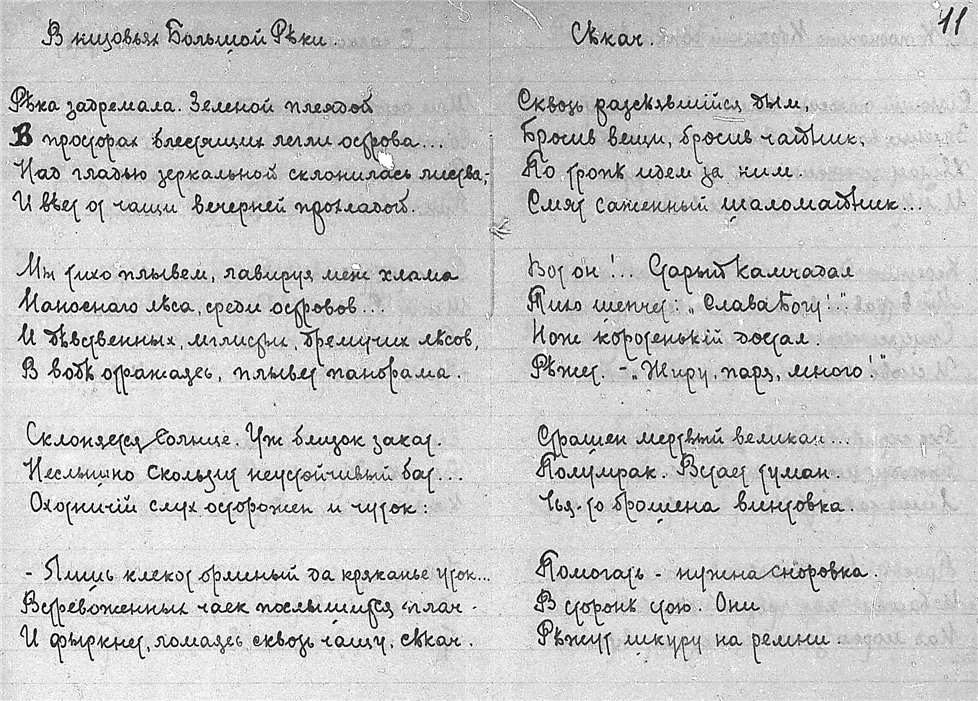 11
В низовьях Большой Рѣки.
Рѣка задремала. Зеленой плеядой
В просторах блестящих легли острова...
Над гладью зеркальной склонилась листва,
И вѣет от чащи вечерней прохладой.
Мы тихо плывем, лавируя меж хлама
Наноснаго лѣса, среди островов...
И дѣвственных, мглистых, дремучих лѣсов,
В водѣ отражаясь, плывет панорама.
Склоняется Солнце. Уж близок закат.
Неслышно скользит неустойчивый бат...
Охотничій слух осторожен и чуток:
- Лишь клекот орлиный да кряканье уток...
Встревоженных чаек послышится плач -
И фыркнет, ломаясь сквозь чащу, сѣкач.
Сѣкач.
Сквозь разсѣявшійся дым,
Бросив вещи, бросив чайник,
По тропѣ идем за ним
Смят саженный шаломайник...
Вот он!... Старый камчадал
Тихо шепчет: „Слава Богу!"
Нож коротенькій достал.
Рѣжет. - „Жиру, паря, много!"
Страшен мертвый великан...
Полумрак. Встает туман.
Чья-то брошена винтовка.
Помогать - нужна сноровка.
В сторонѣ стою. Они
Рѣжут шкуру на ремни